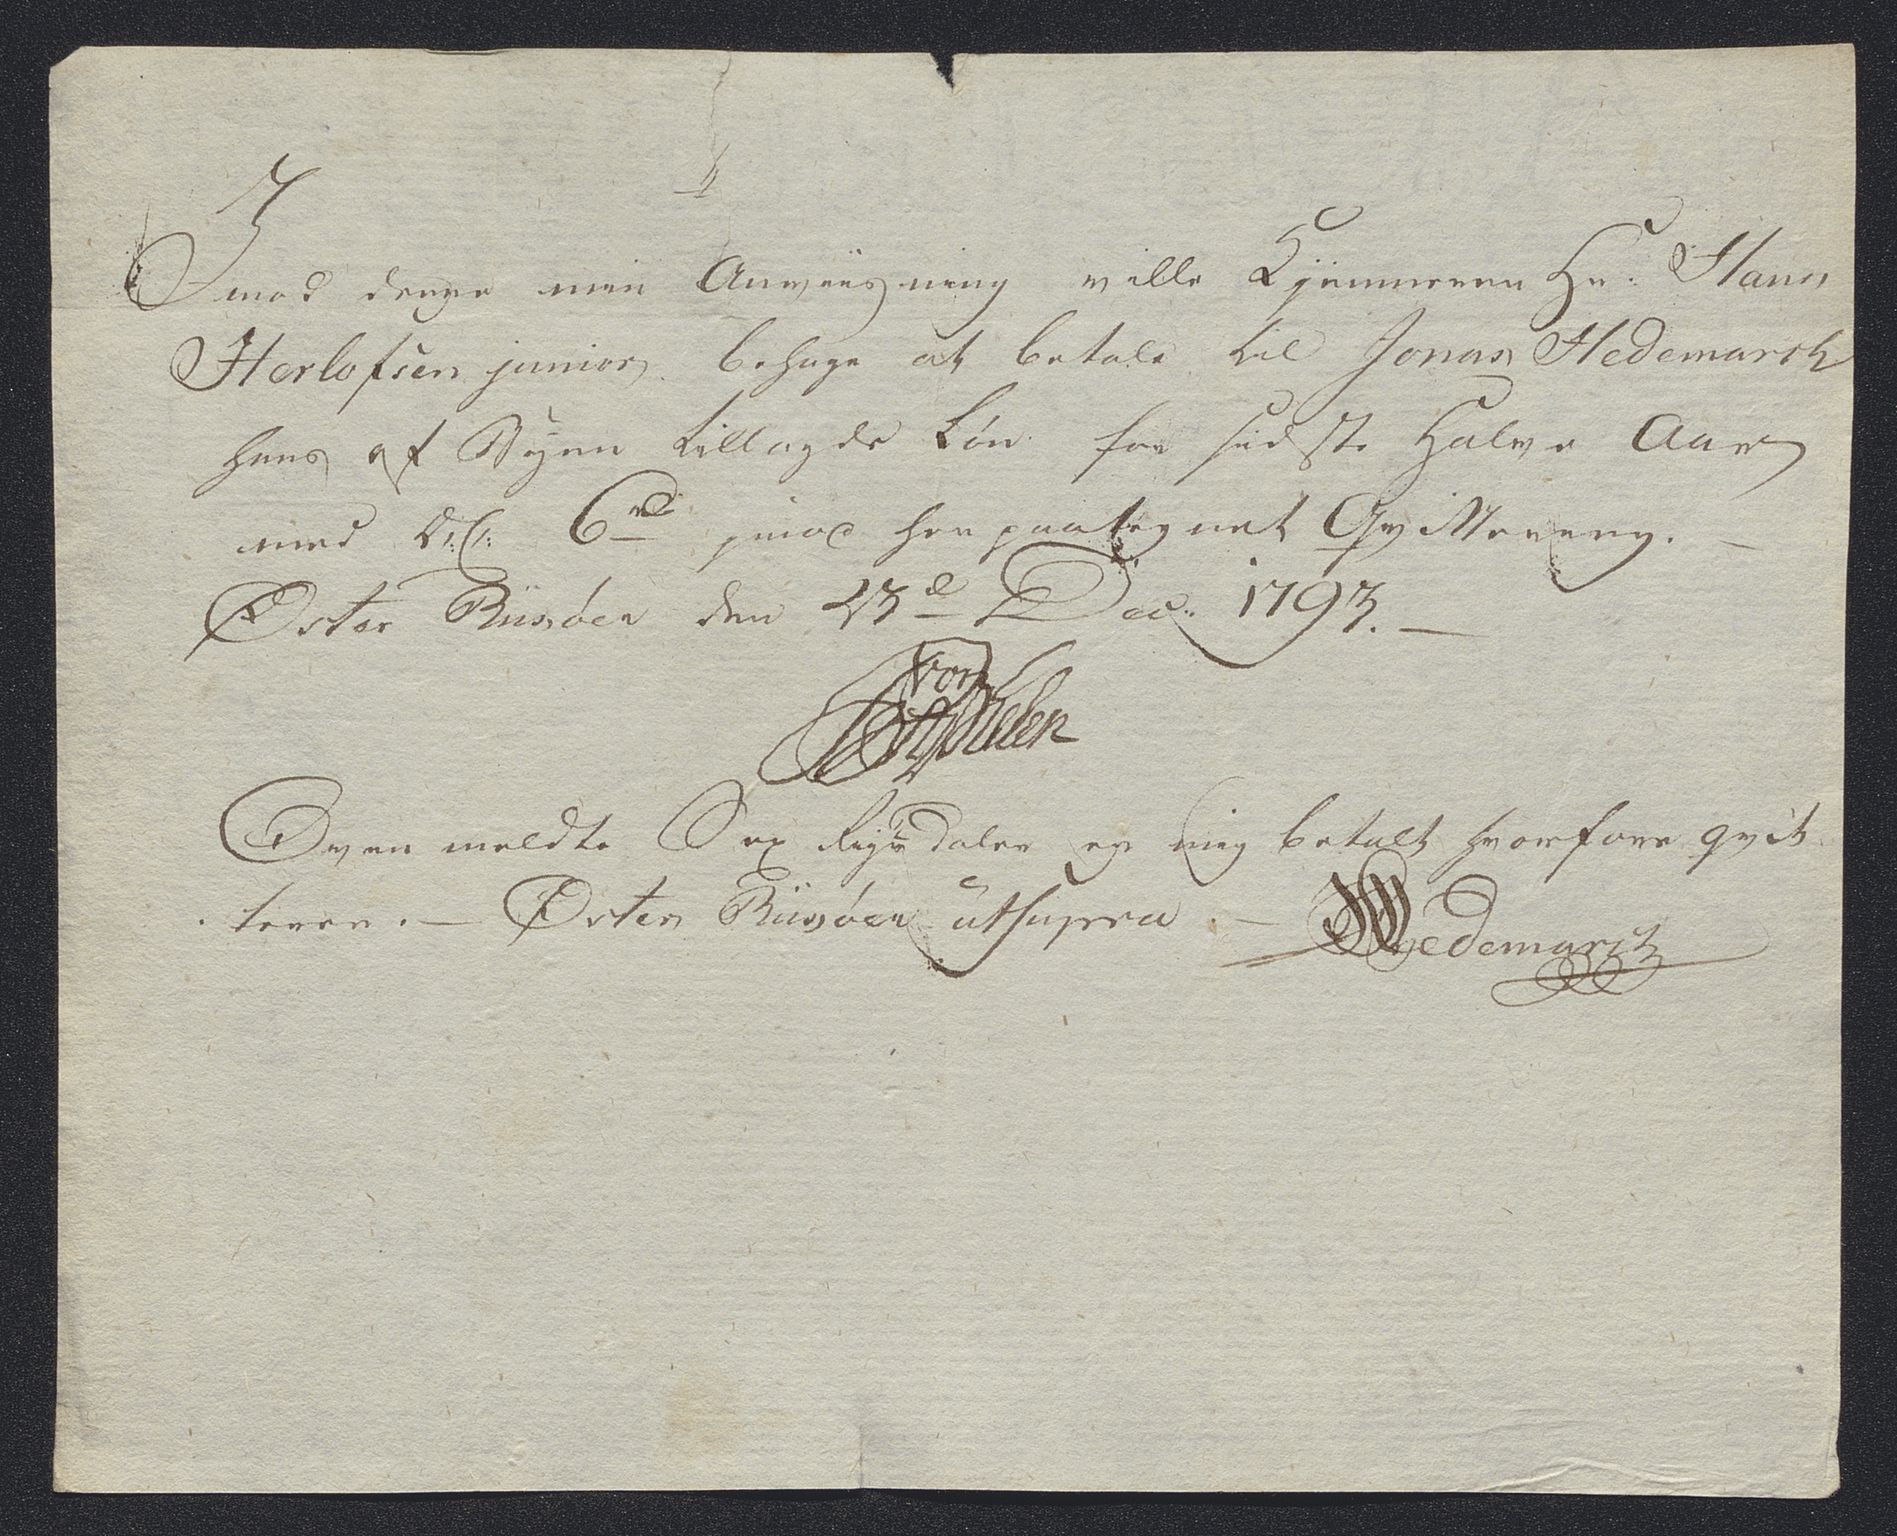 Imod denne min Anviisning ville Kjemneren Hr. Hans
Herlofsen junior behage at betale til Jonas Hedemarck
hans af Byen tillagde Løn for sidste halve Aar
med 6 rd imod her paategnet Qvittering. —
Øster Riisøer den 23de Dec: 1793. —
von
Ovenmeldte Sex Rigsdaler er mig betalt hvorfore qvit
terer. — Øster Riisøer ut supra. — Hedemarck